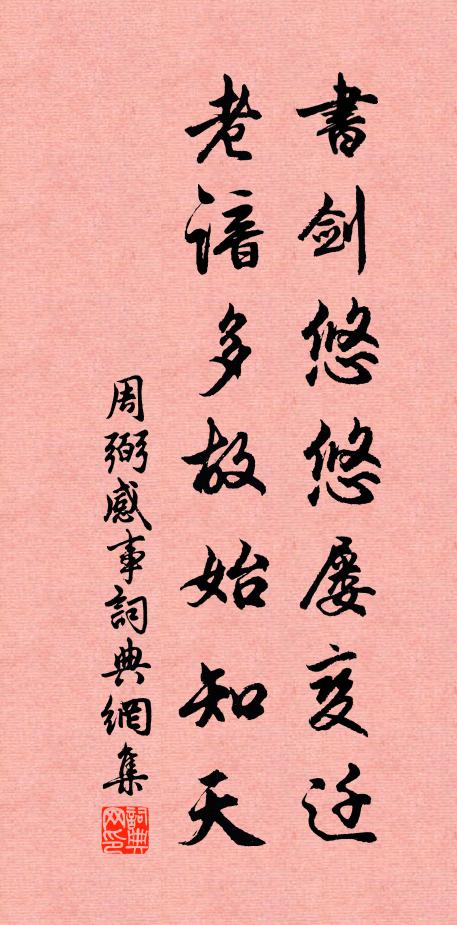 書剑悠悠屡变迁
老谙多故始知天
周弼感事詞典網集
詞典网印